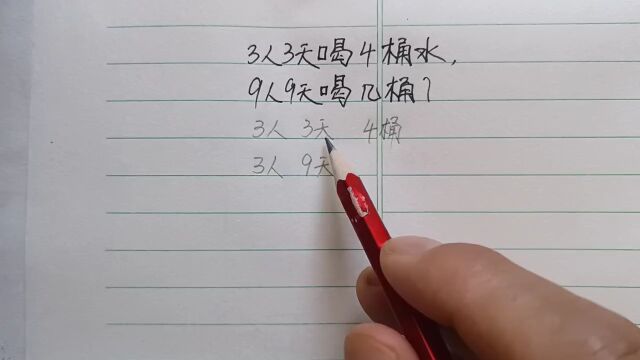 3人3天喝4桶水,
9人9天喝几桶?
3人 3天 4桶
3人 9天